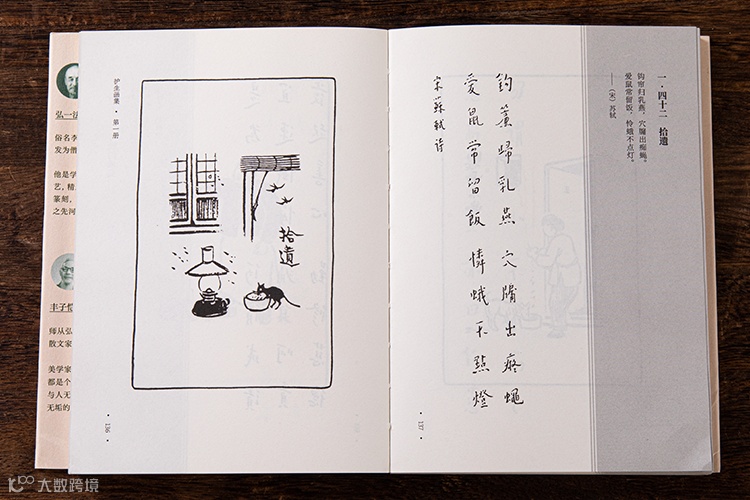 弘一法
俗名李
发为僧
他是学
艺，精
篆刻、
之先河
丰子恺
师从弘
散文家
美学家
都是个
与人无
无垢的
护生画集·第一册
拾遗
·136·
一·四十二 拾遗
钩帘归乳燕，穴牖出痴蝇。
爱鼠常留饭，怜蛾不点灯。
——（宋）苏轼
鈎簾歸乳燕 穴牖出痴蠅
愛鼠常留飯 憐蛾不點燈
宋蘇軾詩
·137·
大数跨境